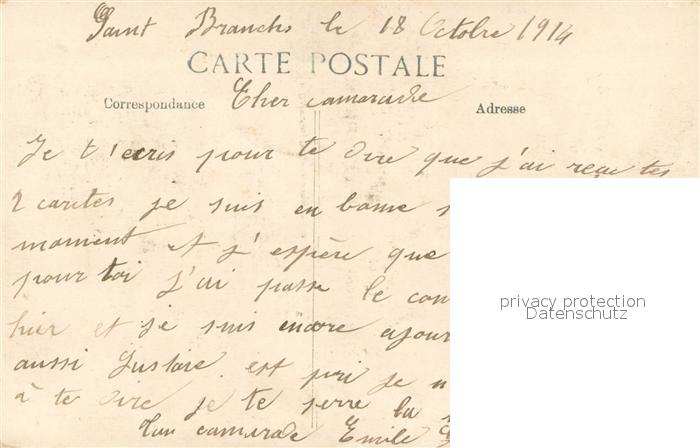 Saint Branchs le 18 Octobre 1914
CARTE POSTALE
Correspondance
Cher camarade
Adresse
Je t'ecris pour te dire que j'ai reçu tes
2 cartes je suis en bonne
moment et j'espère que
pour toi j'ai passe le con
hier et je suis encore ajour
aussi Gustave est pri je n
à te dire je te serre la
Ton camarade Emile
privacy protection
Datenschutz